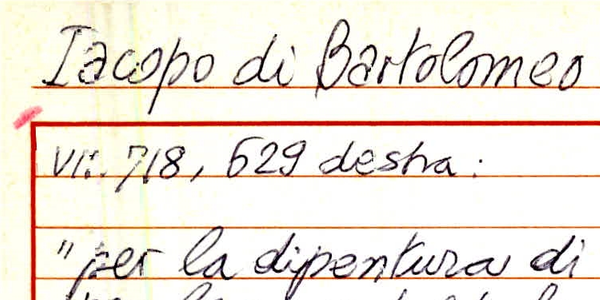 Iacopo di Bartolomeo
VII. 718, 629 destra:
"per la dipentura di